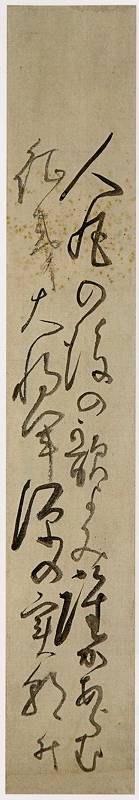 人丸の後の歌よみは誰かあらむ
征夷大将軍源の実朝